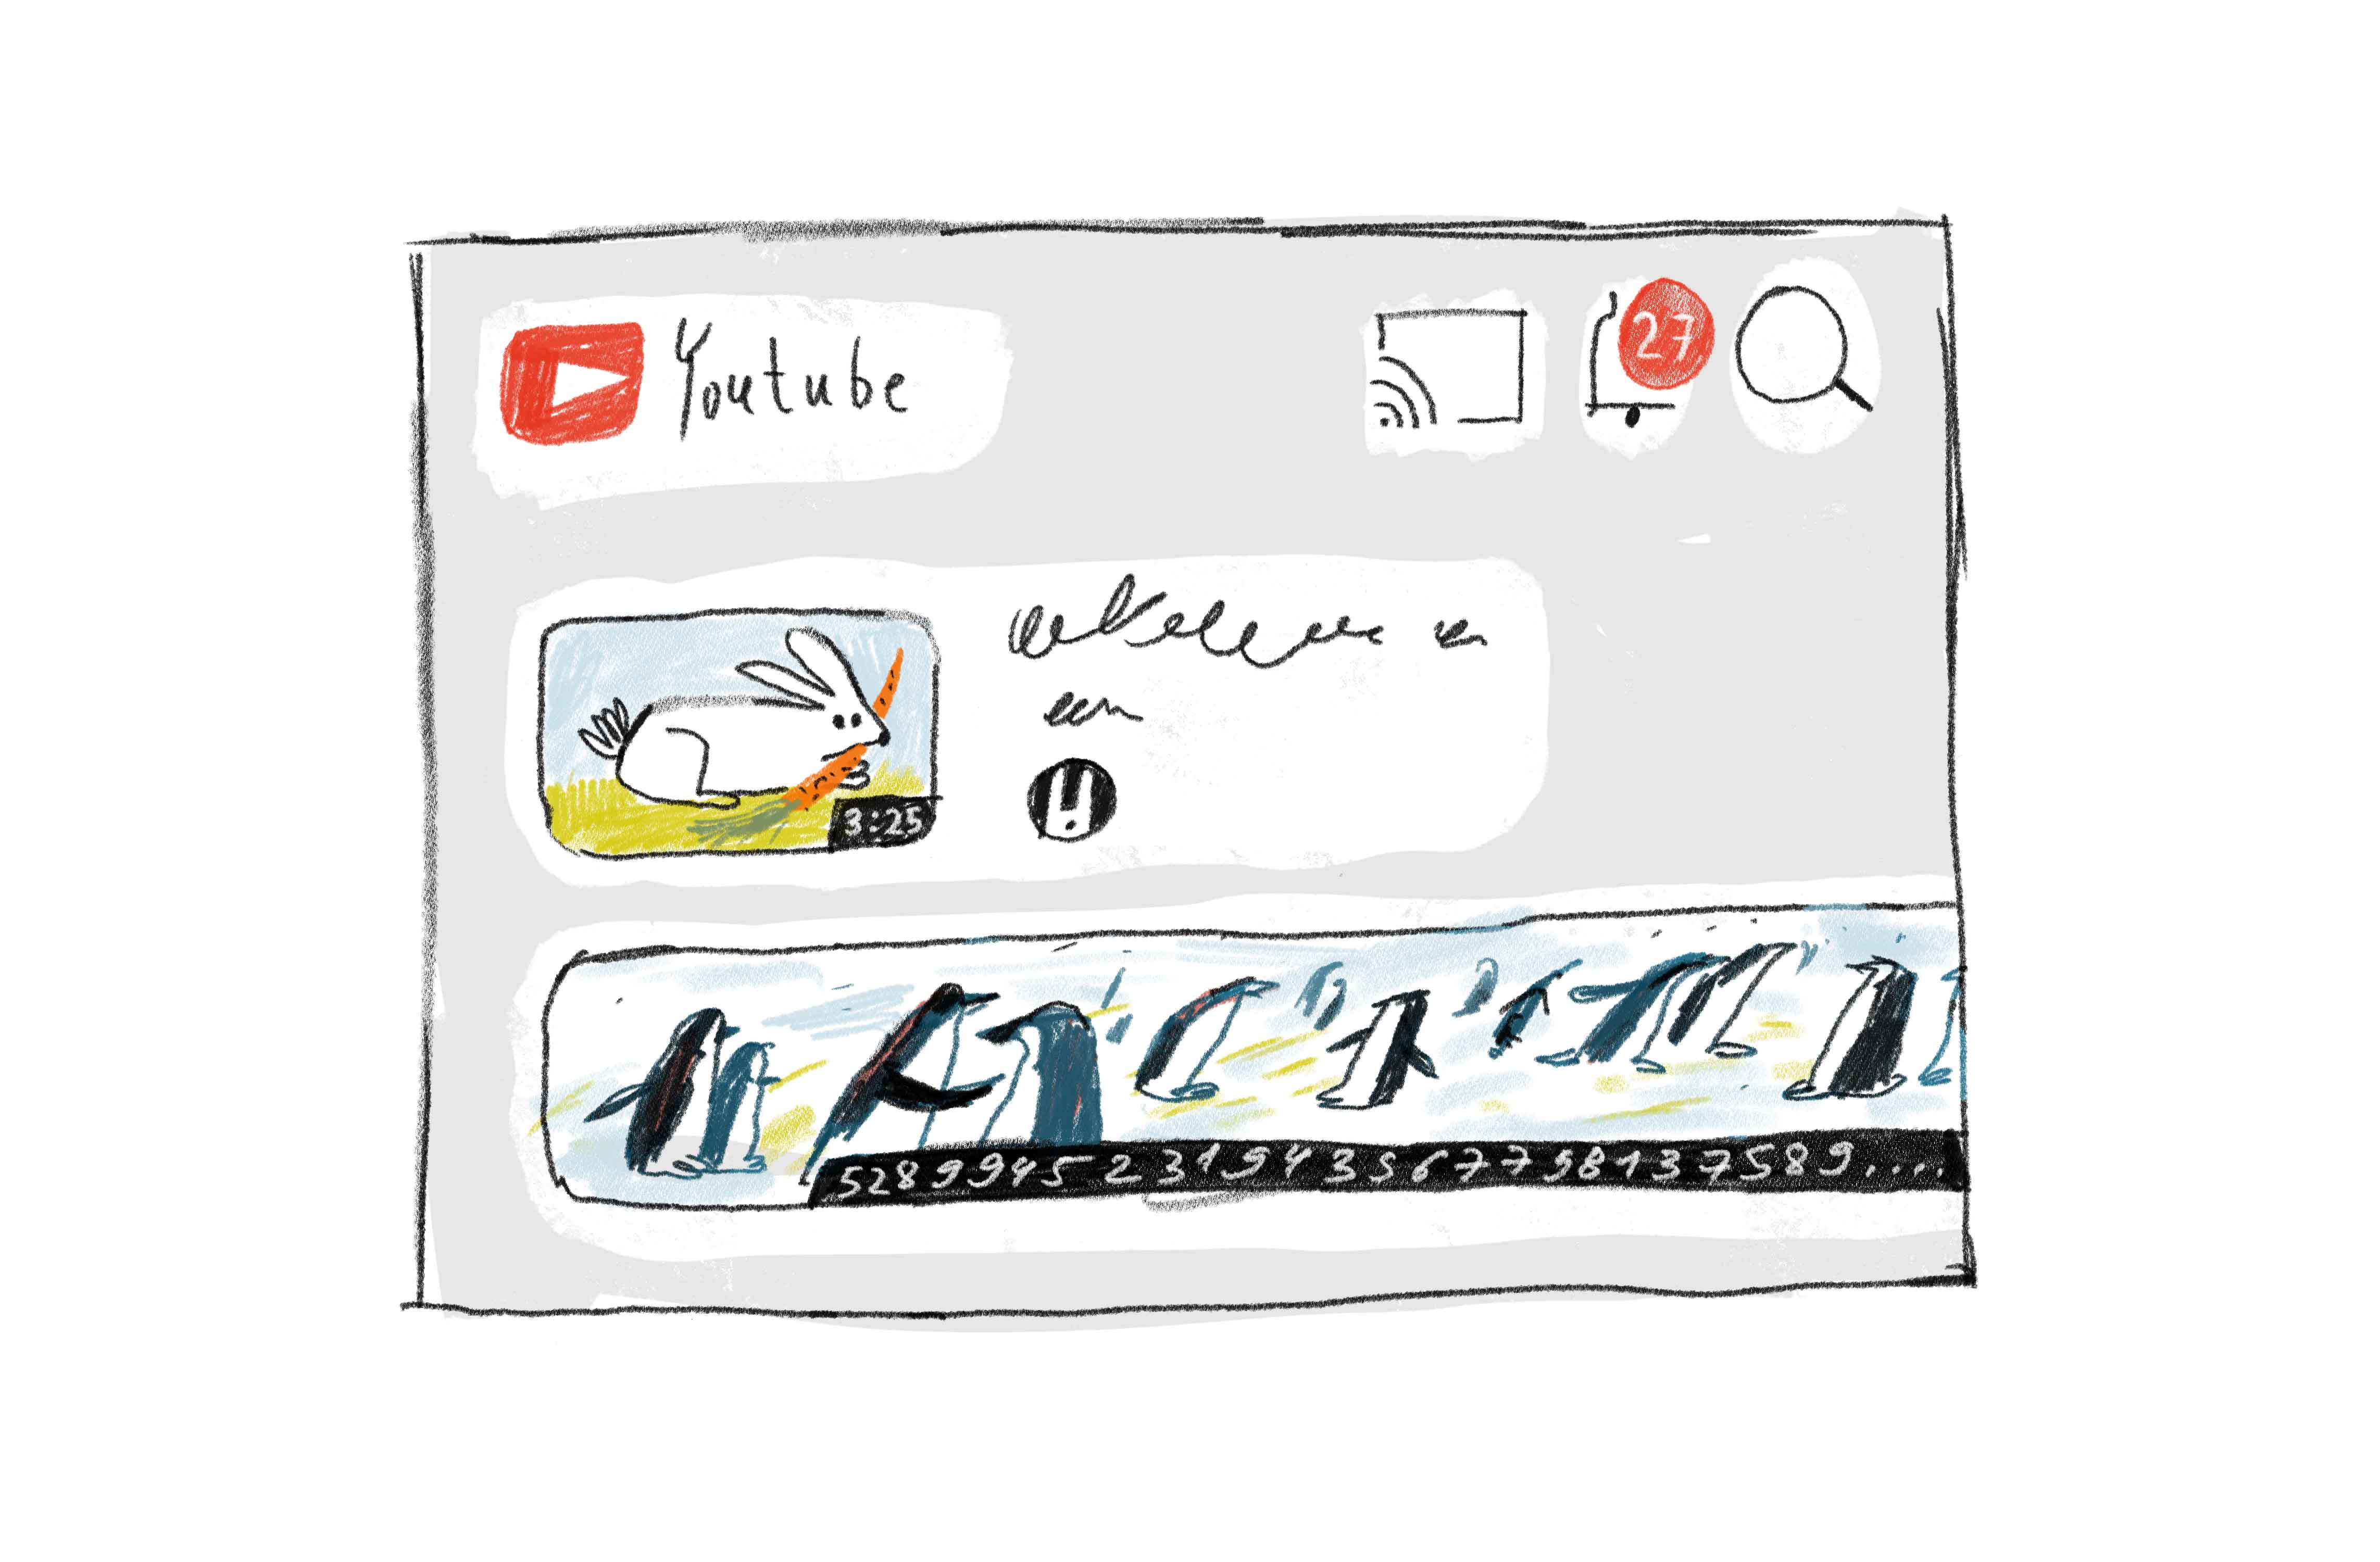 Youtube
27
3:25
5289945231943567798137589....